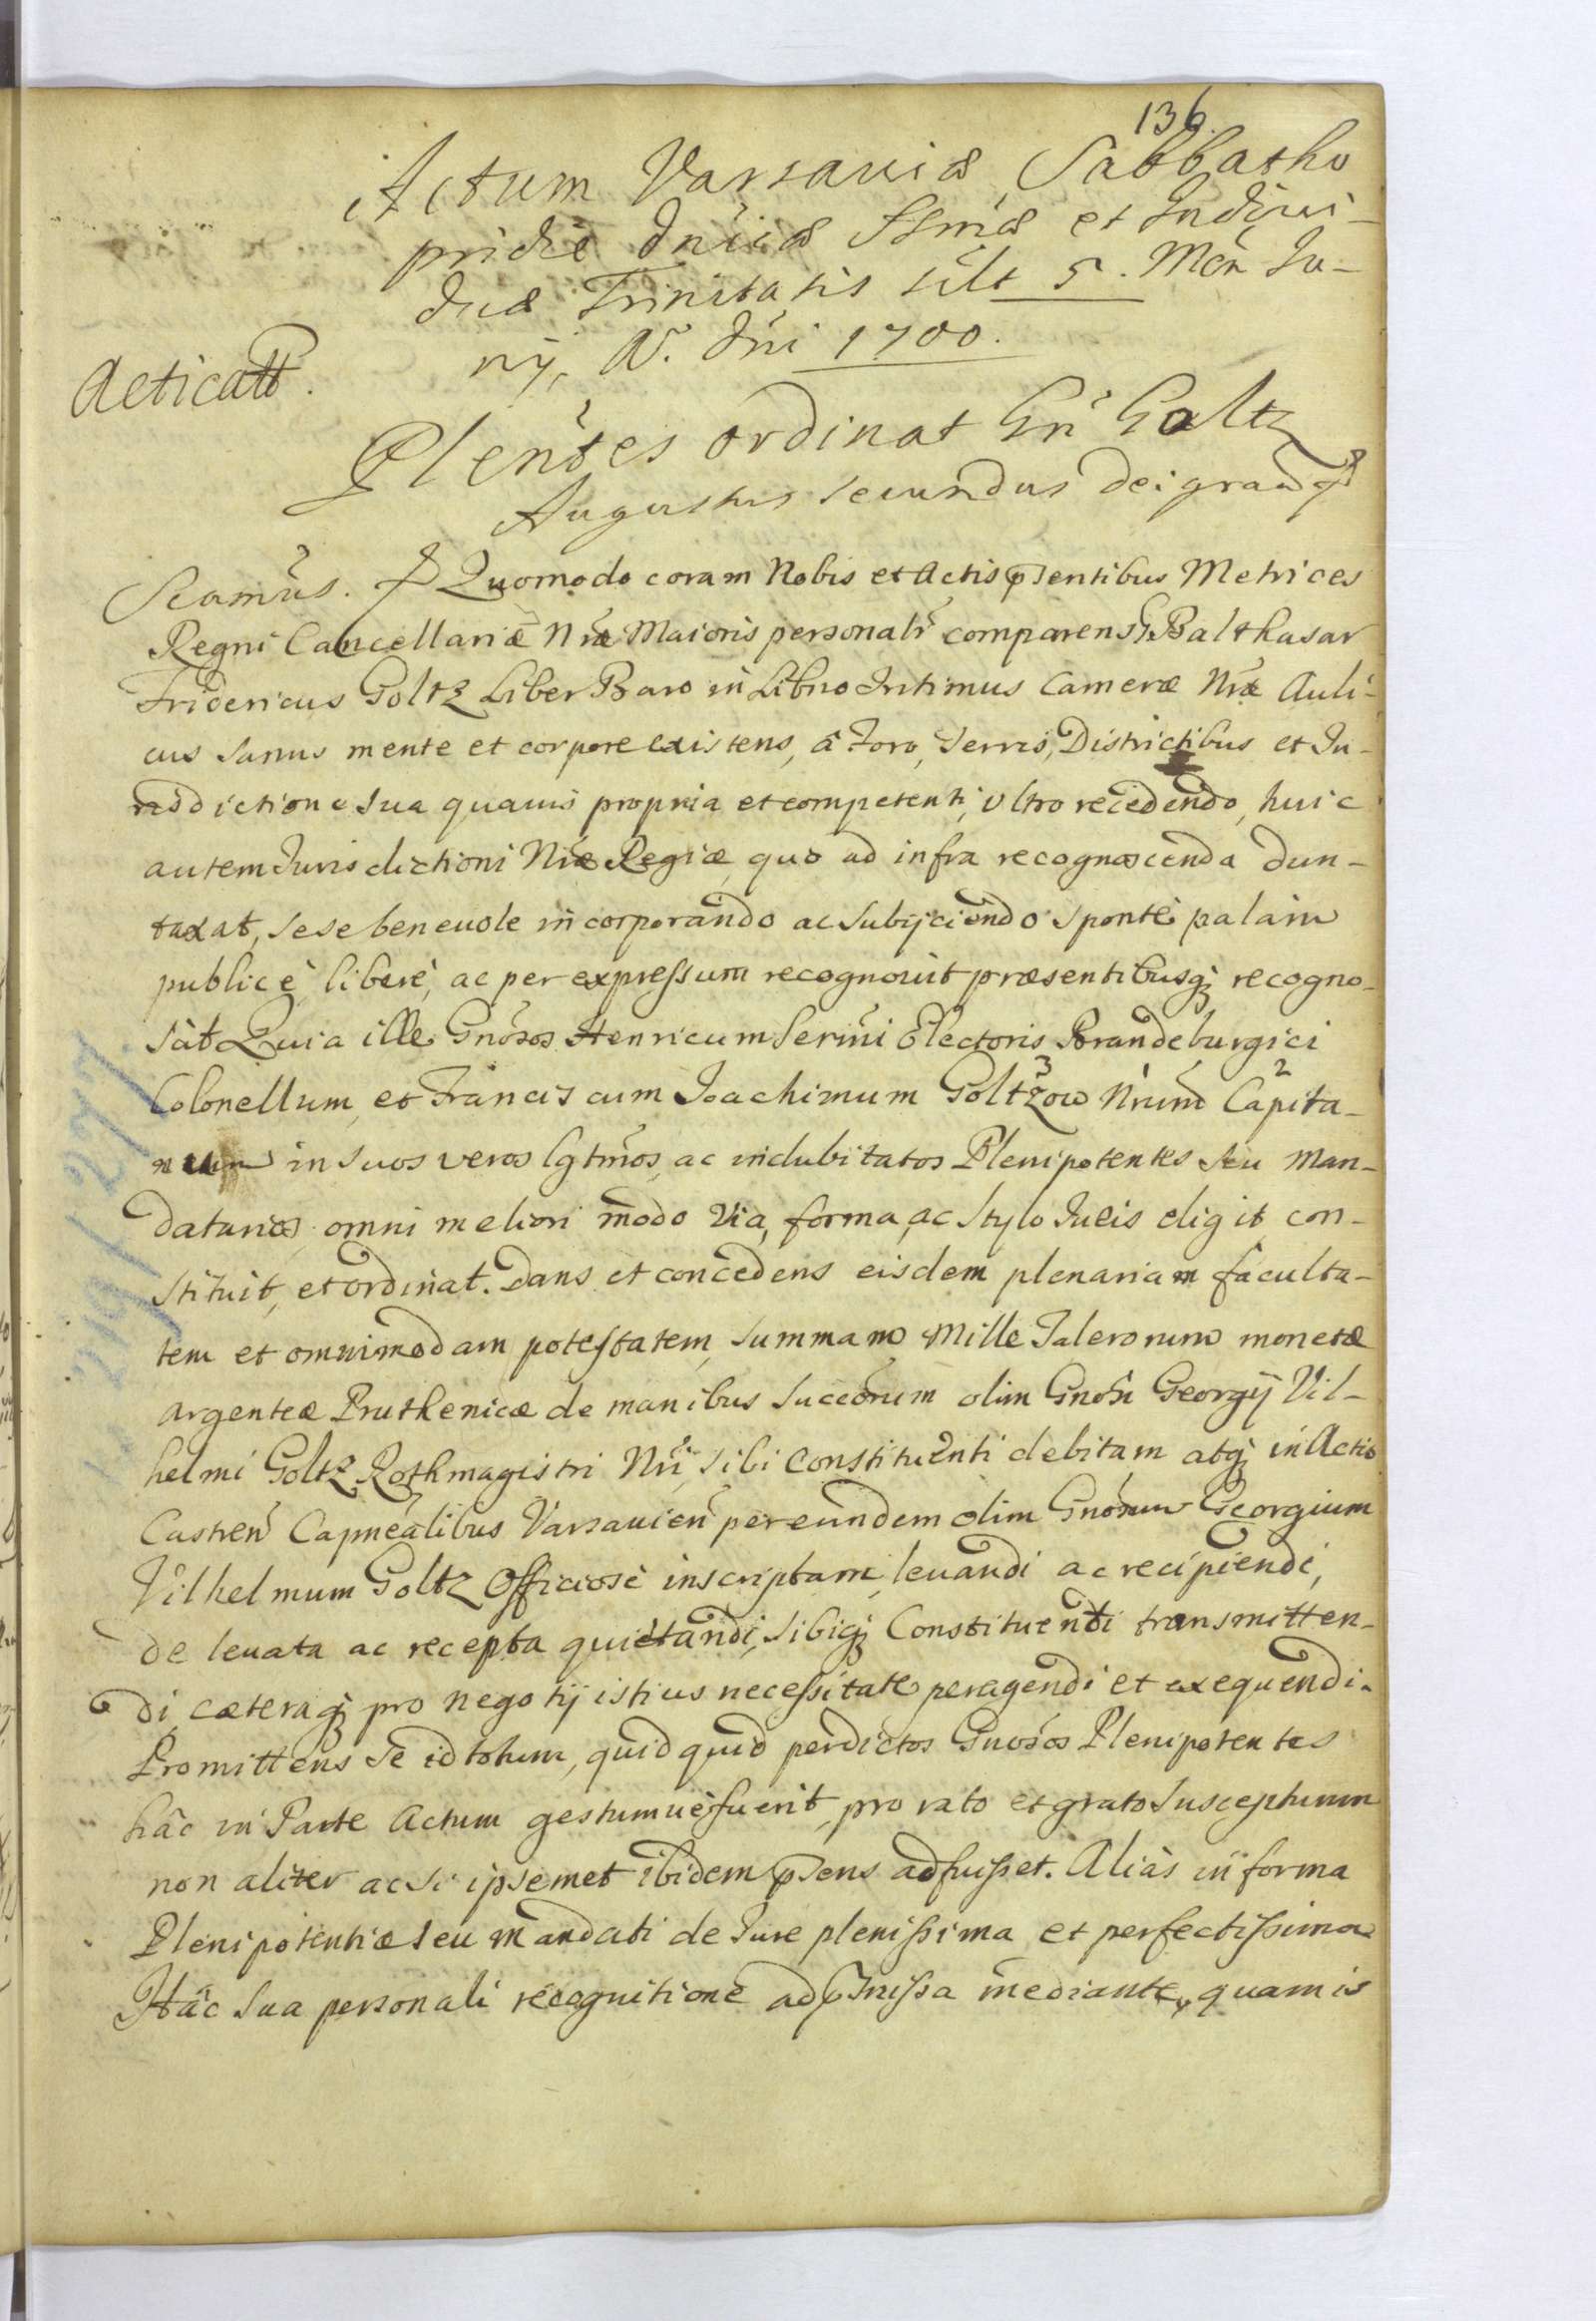 136.
Actum Varsaviæ Sabbatho
pridie Dnīcæ SSmæ et Indivi-
duæ Trinitatis scilt 5. Men Ju-
nÿ, Aº. Dni 1700.
Acticatt.
Plentes ordinat Gn̄ Goltz
Augustus Secundus Dei graã &
Scamūs. & Quomodo coram Nobis et Actis p̄sentibus Metrices
Regni Cancellariæ Nræ Maioris personalr comparens G. Balthasar
Fridericus Goltz Liber Baro in Libno Intimus Cameræ Nræ Auli-
cus sanus mente et corpore existens, â Foro, Terris, Districtibus et Iu-
risdictione sua quavis propria et competenti, ultro recedendo, huic
autem Iurisdictioni Nræ Regiæ, quo ad infra recognoscenda dun-
taxat, sese benevole incorporando ac subÿciendo sponte palam
publicè, liberè, ac per expressum recognovit præsentibusq; recogno-
scit Quia ille Gnosos Henricum Sermi Electoris Brandeburgici
Colonellum, et Franciscum Joachimum Goltzow 3 Nrum Capita- 2
neum in suos veros lgtmos, ac indubitatos Plenipotentes seu Man-
datarios omni meliori modo via, forma, ac stylo Iuris eligit con-
stituit, et ordinat. Dans et concedens eisdem plenariam faculta-
tem et omnimodam potestatem, summam Mille Talerorum monetæ
argenteæ Pruthenicæ de manibus Succrorum olim Gnosi Georgÿ Vil-
helmi Goltz Rothmagistri Nri, sibi Constituenti debitam atq; in Actis
Castren Capnealibus Varsavien per eundem olim Gnosum Georgium
Vilhelmum Goltz Officiose inscriptam, levandi ac recipiendi,
de levata ac recepta quietandi, sibiq; Constituenti transmitten-
di cæteraq; pro negotÿ istius necessitate peragendi et exequendi.
Promittens se id totum, quidquid per dictos Gnosos Plenipotentes
hâc in Parte Actum gestumve fuerit, pro rato et grato suscepturum
non aliter ac si ipsemet ibidem p̄sens adfuisset. Aliàs in forma
Plenipotentiæ seu mandati de Iure plenissima et perfectissima
Hâc sua personali recognitione ad p̄missa mediante, quam is
219/277